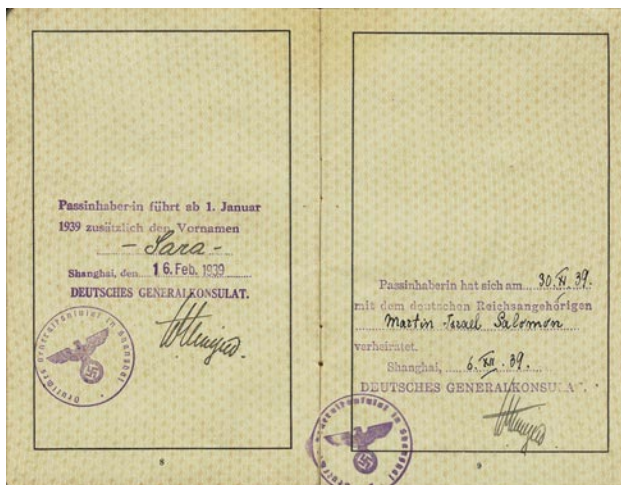 Passinhaber-in führt ab 1. Januar
1939 zusätzlich den Vornamen
- Sara -
Shanghai, den 16. Feb. 1939
DEUTSCHES GENERALKONSULAT.
Deutsches Generalkonsulat in Shanghai
8
Passinhaberin hat sich am 30. XI. 39.
mit dem deutschen Reichsangehörigen
Martin Israel Salomon
verheiratet.
Shanghai, 6. XII. 39.
DEUTSCHES GENERALKONSULAT.
Generalkonsulat in Shanghai
9